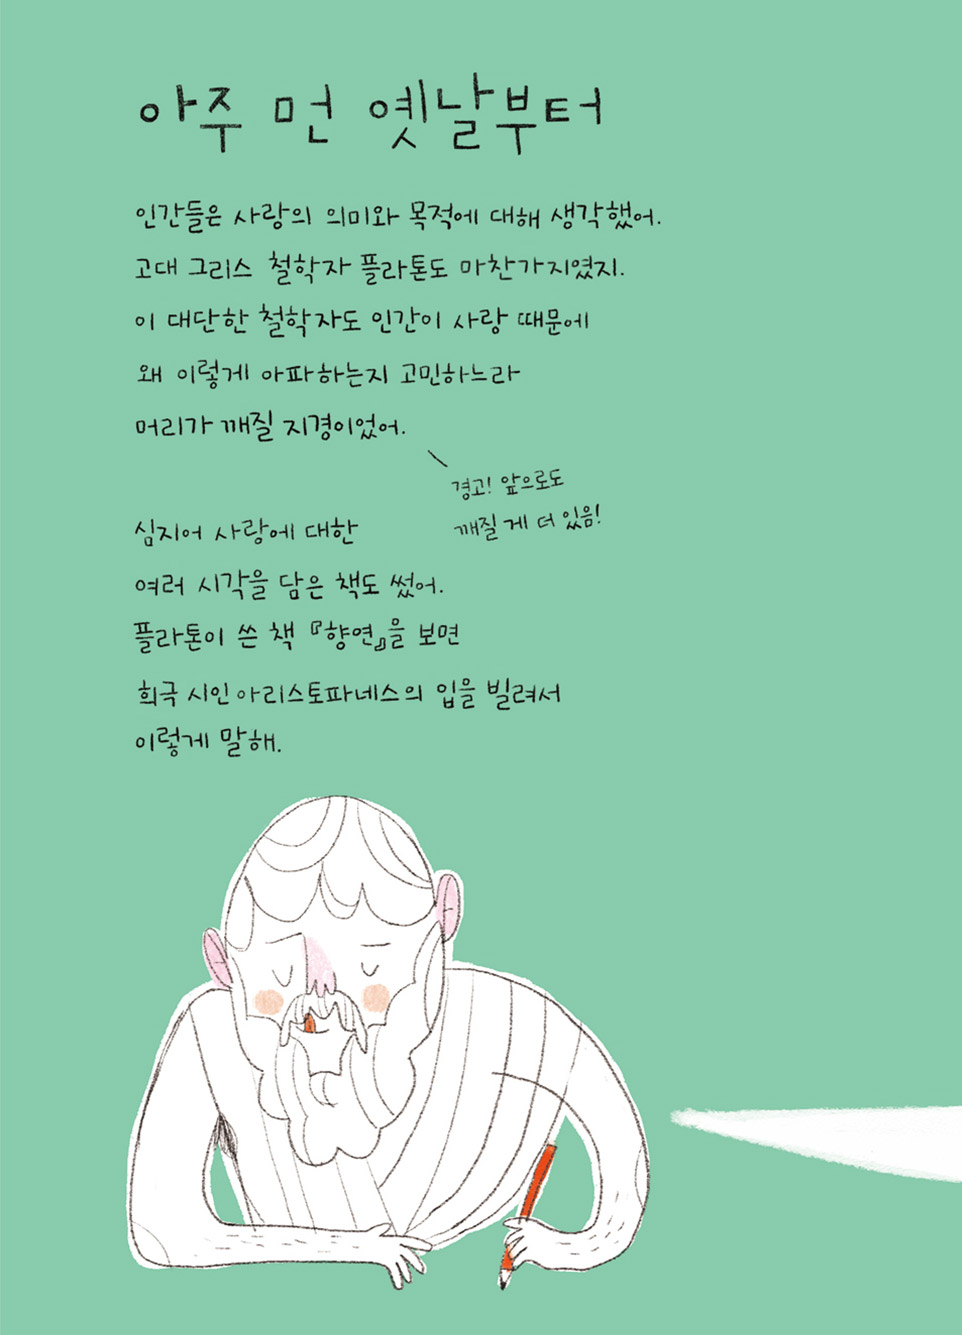 아주 먼 옛날부터
인간들은 사랑의 의미와 목적에 대해 생각했어.
고대 그리스 철학자 플라톤도 마찬가지였지.
이 대단한 철학자도 인간이 사랑 때문에
왜 이렇게 아파하는지 고민하느라
머리가 깨질 지경이었어.
경고! 앞으로도
깨질 게 더 있음!
심지어 사랑에 대한
여러 시각을 담은 책도 썼어.
플라톤이 쓴 책 『향연』을 보면
희극 시인 아리스토파네스의 입을 빌려서
이렇게 말해.